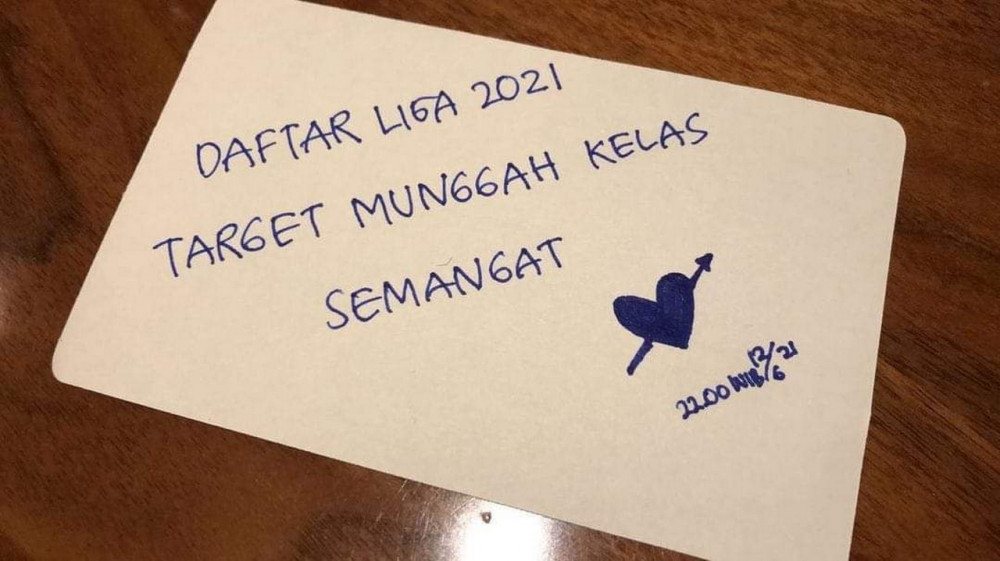 DAFTAR LIGA 2021
TARGET MUNGGAH KELAS
SEMANGAT
22.00 WIB 12/6 21